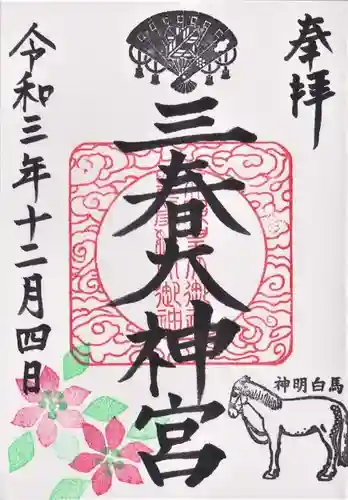 奉拝
三春大神宮
令和三年十二月四日
神明白馬